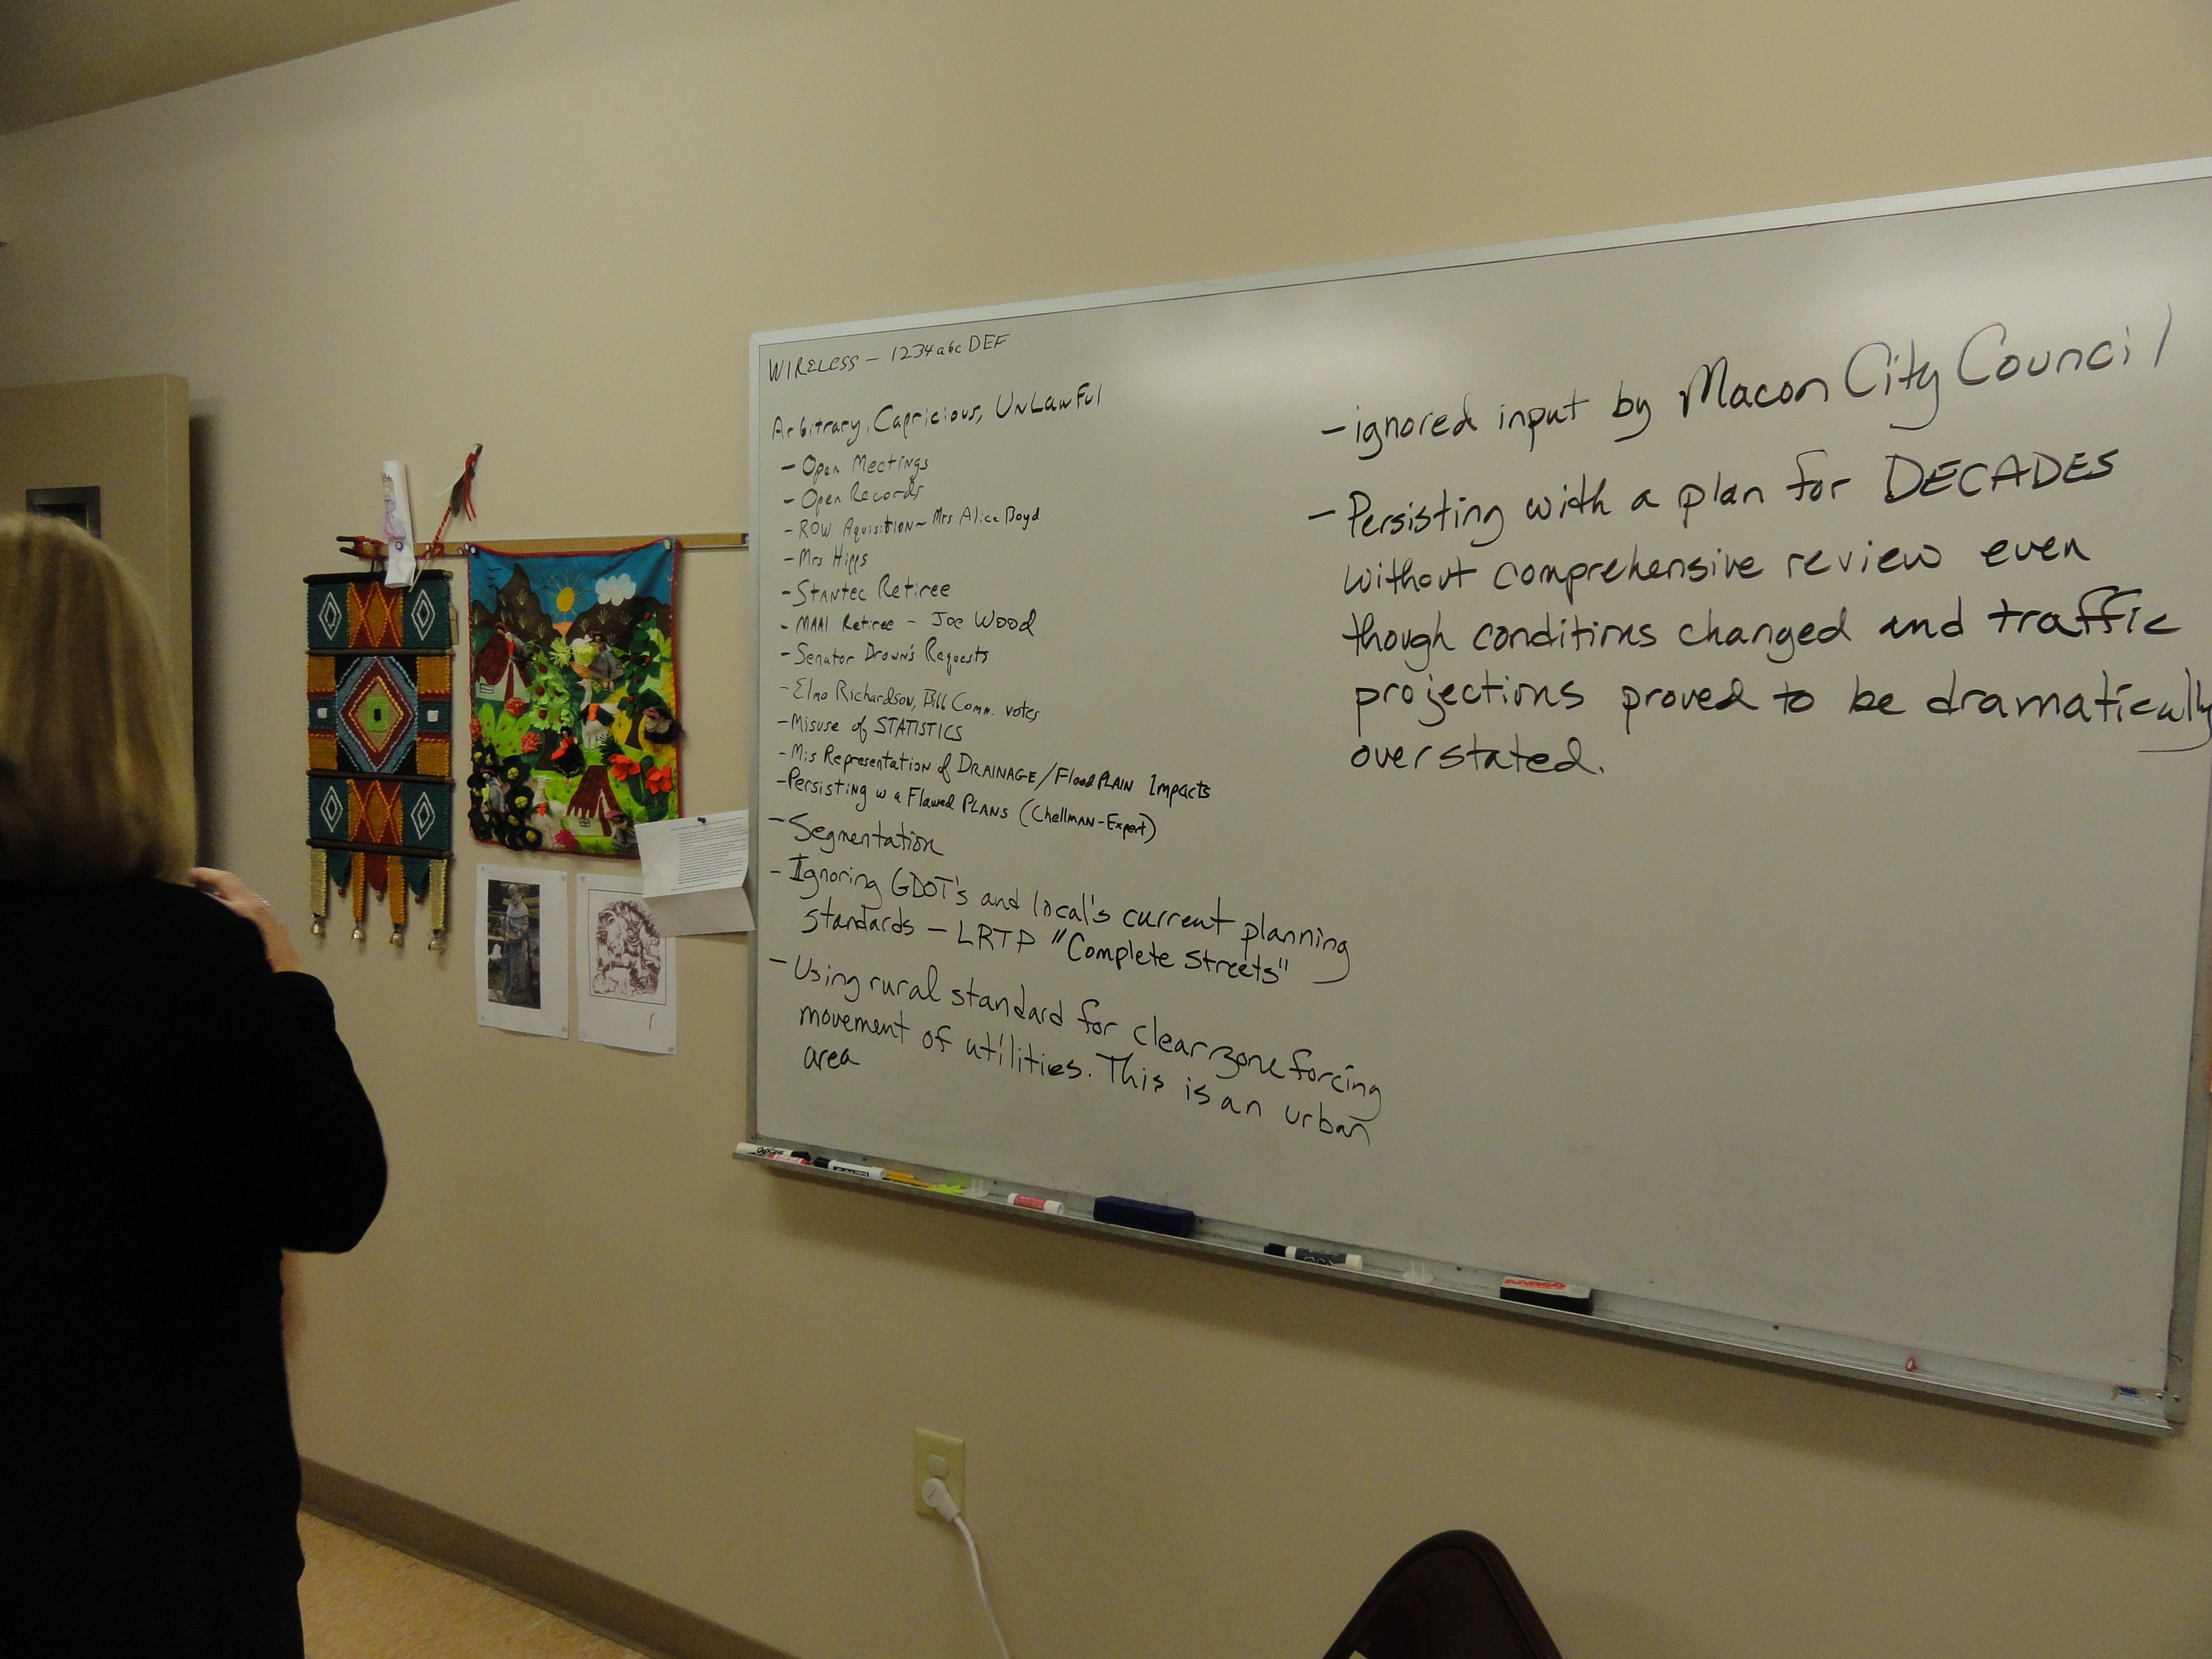 WIRELESS – 1234abcDEF
Arbitrary, Capricious, UnLawFul
– Open Meetings
– Open Records
– ROW Aquisition – Mrs Alice Boyd
– Mrs Hipps
– Stantec Retiree
– MAAI Retiree – Joe Wood
– Senator Brown's Requests
– Elmo Richardson, Bill Comm. votes
– Misuse of STATISTICS
– Mis Representation of DRAINAGE/FloodPLAIN Impacts
– Persisting w a Flawed PLANS (Chellman-Expert)
– Segmentation
– Ignoring GDOT's and local's current planning
standards – LRTP "Complete Streets"
– Using rural standard for clear zone forcing
movement of utilities. This is an urban
area
– ignored input by Macon City Council
– Persisting with a plan for DECADES
without comprehensive review even
though conditions changed and traffic
projections proved to be dramatically
overstated.